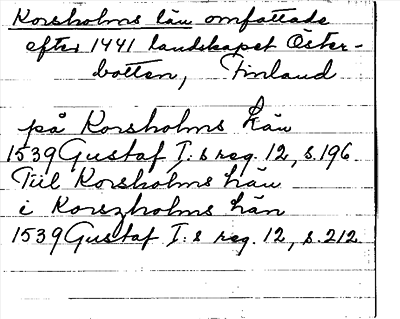 Korsholms län omfattade
efter 1441 landskapet Öster-
botten, Finland
på Korsholms Län
1539 Gustaf I:s reg. 12, s. 196
Till Korsholms Län
i Korszholms Län
1539 Gustaf I:s reg. 12, s. 212